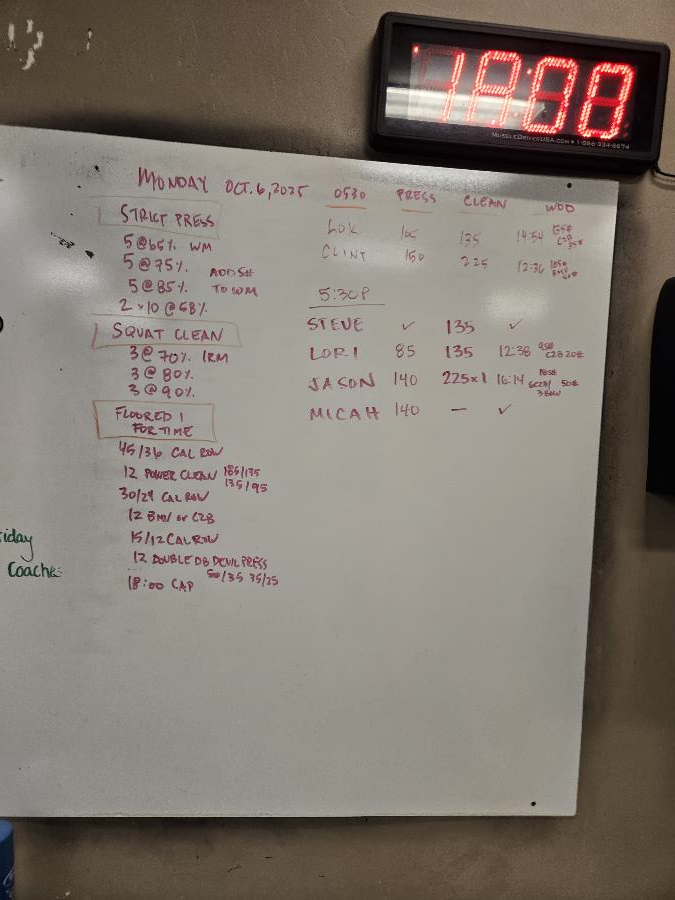 18:00
MUSCLEDRIVERUSA.COM • 1-866-354-8674
MONDAY OCT. 6, 2025
STRICT PRESS
5 @ 65% WM
5 @ 75%
5 @ 85%
ADD 5#
TO WM
2 x 10 @ 68%
SQUAT CLEAN
3 @ 70% 1RM
3 @ 80%
3 @ 90%
FLOORED 1
FOR TIME
45/36 CAL ROW
12 POWER CLEAN 185/135
135/95
30/24 CAL ROW
12 BMU or C2B
15/12 CAL ROW
12 DOUBLE DB DEVIL PRESS
50/35 35/25
18:00 CAP
0530 PRESS CLEAN WOD
135 14:54 135#
C2B
35#
CLINT 150 225 12:36 185#
BMU
5:30P
STEVE ✓ 135 ✓
LORI 85 135 12:38 95#
C2B 20#
JASON 140 225x1 16:14 185#
6C2B/ 50#
3 BMU
MICAH 140 — ✓
riday
Coaches